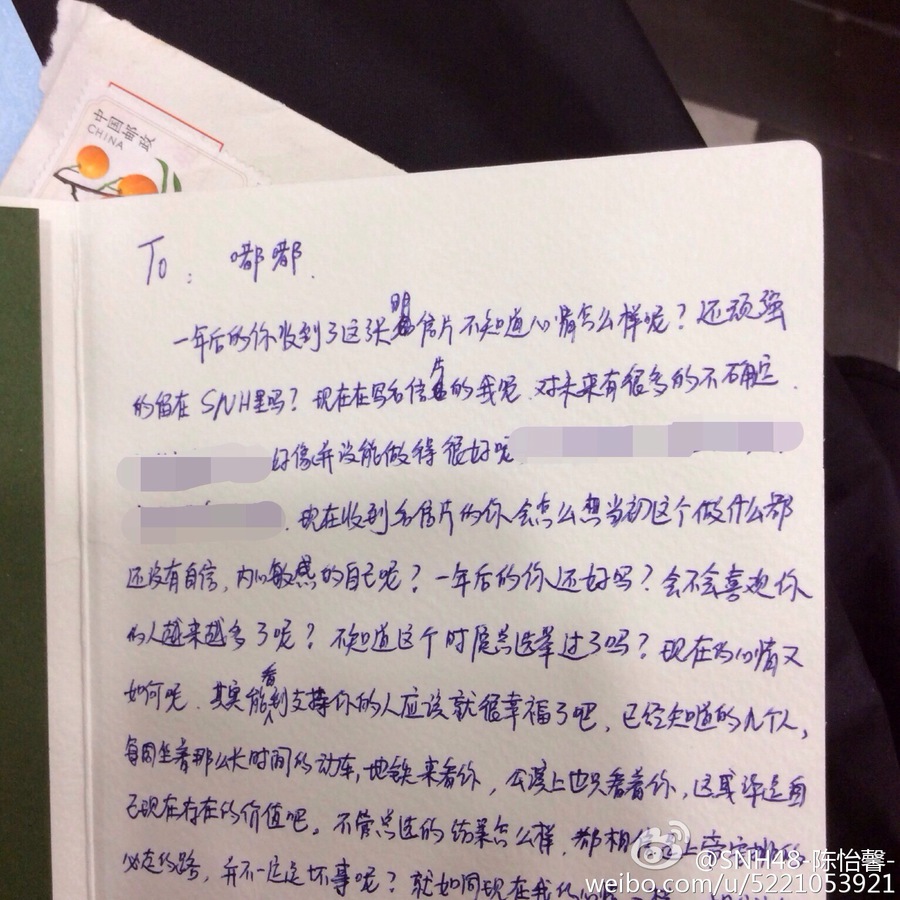 中国邮政
CHINA
To: 嘟嘟.
一年后的你收到了这张明信片不知道心情怎么样呢？还顽强
的留在SNH里吗？现在在写名信片的我呢.对未来有很多的不确定.
好像并没能做得很好呢
.现在收到名信片的你会怎么想当初这个做什么都
还没有自信，内心敏感的自己呢？一年后的你还好吗？会不会喜欢你
的人越来越多了呢？不知道这个时候总选举过了吗？现在的心情又
如何呢.其实能看到支持你的人应该就很幸福了吧，已经知道的几个人，
每周坐着那么长时间的动车，地铁来看你，公演上也只看着你，这或许是自
己现在存在的价值吧。不管总选的结果怎么样，都相信是上帝安排的
必走的路，并不一定是坏事呢？就如同现在我的心情一样
@SNH48-陈怡馨-
weibo.com/u/5221053921